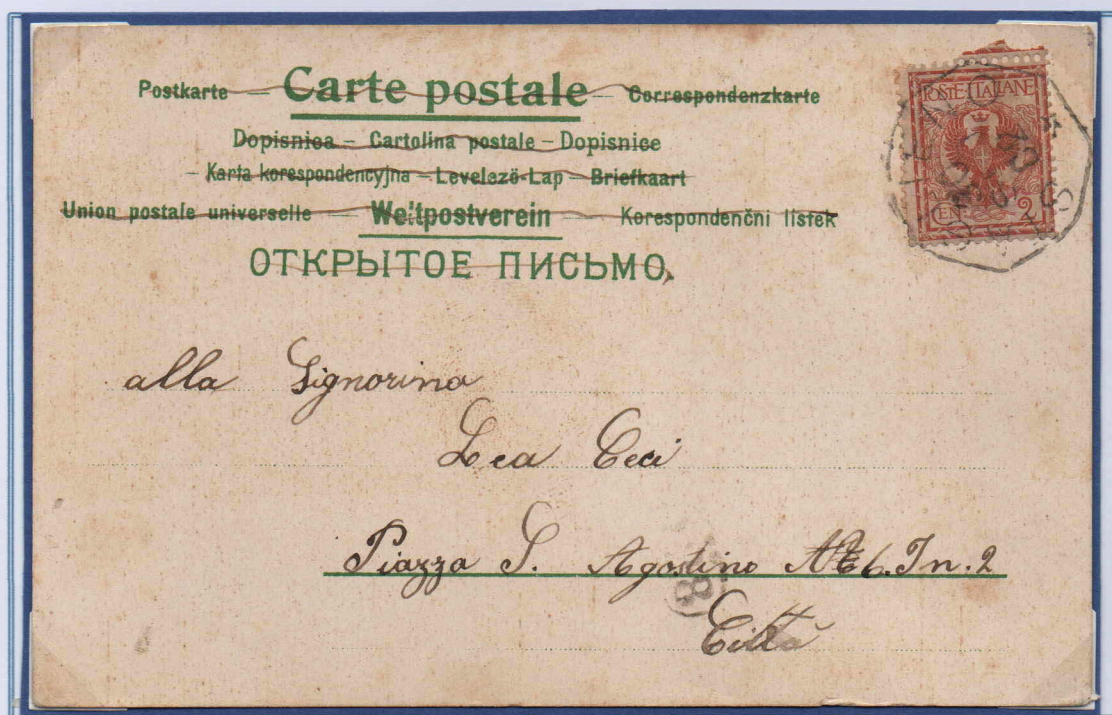 Postkarte – Carte postale – Correspondenzkarte
Dopisnica – Cartolina postale – Dopisnice
– Karta korespondencyjna – Levelezö-Lap – Briefkaart
Union postale universelle – Weltpostverein – Korespondenční listek
ОТКРЫТОЕ ПИСЬМО.
POSTE·ITALIANE
2
alla Signorina
Lea Ceci
Piazza S. Agostino 6. In. 2
8
Città